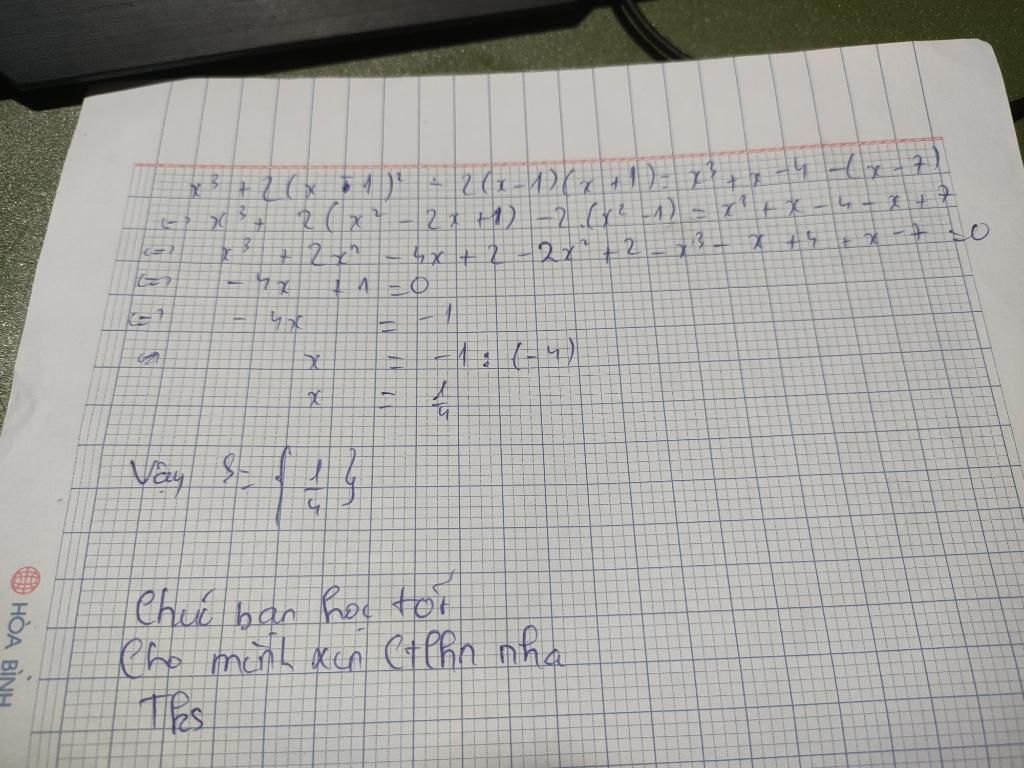 x³ + 2(x - 1)² - 2(x-1)(x+1) = x³ + x - 4 - (x - 7)
<=> x³ + 2(x² - 2x + 1) - 2.(x² - 1) = x³ + x - 4 - x + 7
<=> x³ + 2x² - 4x + 2 - 2x² + 2 - x³ - x + 4 + x - 7 = 0
<=> - 4x + 1 = 0
<=> - 4x = -1
<=> x = -1 : (-4)
x = 1/4
Vậy S = { 1/4 }
Chúc bạn học tốt
Cho mình xin Ctlhn nha
Tks
HÒA BÌNH